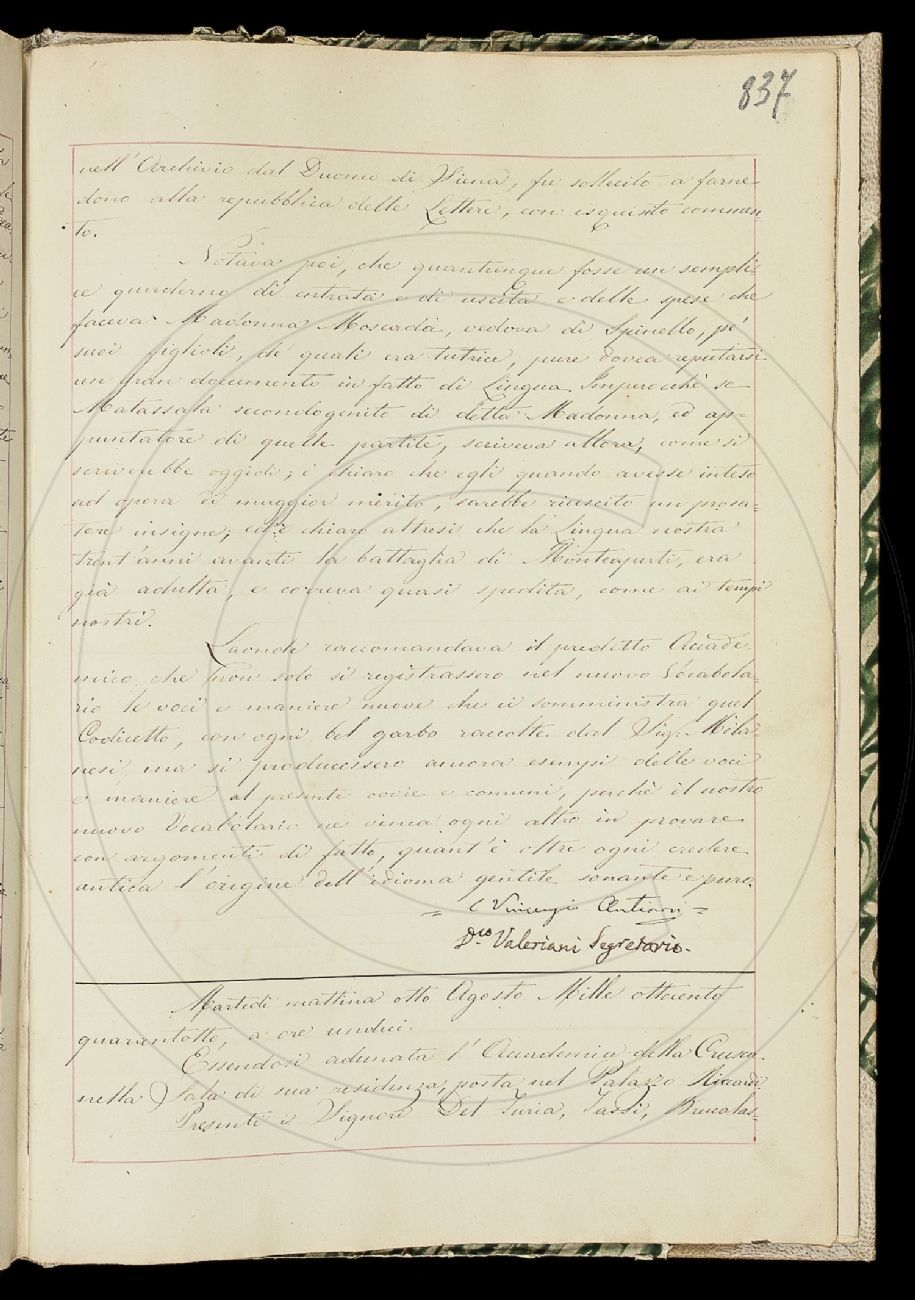 837
nell'Archivio dal Duomo di Siena, fu sollecito a farne
dono alla repubblica delle Lettere, con isquisito commen,
to.
Notava poi, che quantunque fosse un sempli=
ce quaderno di entrata e di uscita e delle spese che
faceva Madonna Moscada, vedova di Spinello, pe'
suoi figlioli, de' quali era tutrice, pure dovea reputarsi
un gran documento in fatto di Lingua. Imperocchè se
Matassala secondogenito di detta Madonna, ed ap=
puntatore di quelle partite, scriveva allora, come si
scriverebbe oggidì; è chiaro che egli quando avesse inteso
ad opera di maggior merito, sarebbe riuscito un prosa=
tore insigne; ed è chiaro altresì che la Lingua nostra
trent'anni avanti la battaglia di Monteaperti, era
già adulta, e correva quasi spedita, come ai tempi
nostri.
Laonde raccomandava il predetto Accade
mico, che non solo si registrassero nel nuovo Vocabola=
rio le voci e maniere nuove che ci somministra quel
Codicetto, con ogni bel garbo raccolte dal Sig: Mila=
nesi, ma si producessero ancora esempi delle voci
e maniere al presente ovvie e comuni, perchè il nostro
nuovo Vocabolario ne vinca ogni altro in provare
con argomenti di fatto, quant'è oltre ogni credere
antica l'origine dell'idioma gentile sonante e puro.
= Vincenzio Antinori =
D.co Valeriani Segretario.
Martedì mattina otto Agosto Mille ottocento
quarantotto, a ore undici.
Essendosi adunata l'Accademia della Crusca
nella Sala di sua residenza posta nel Palazzo Riccardi
Presenti i Signori Del Furia, Tassi, Brucalas=